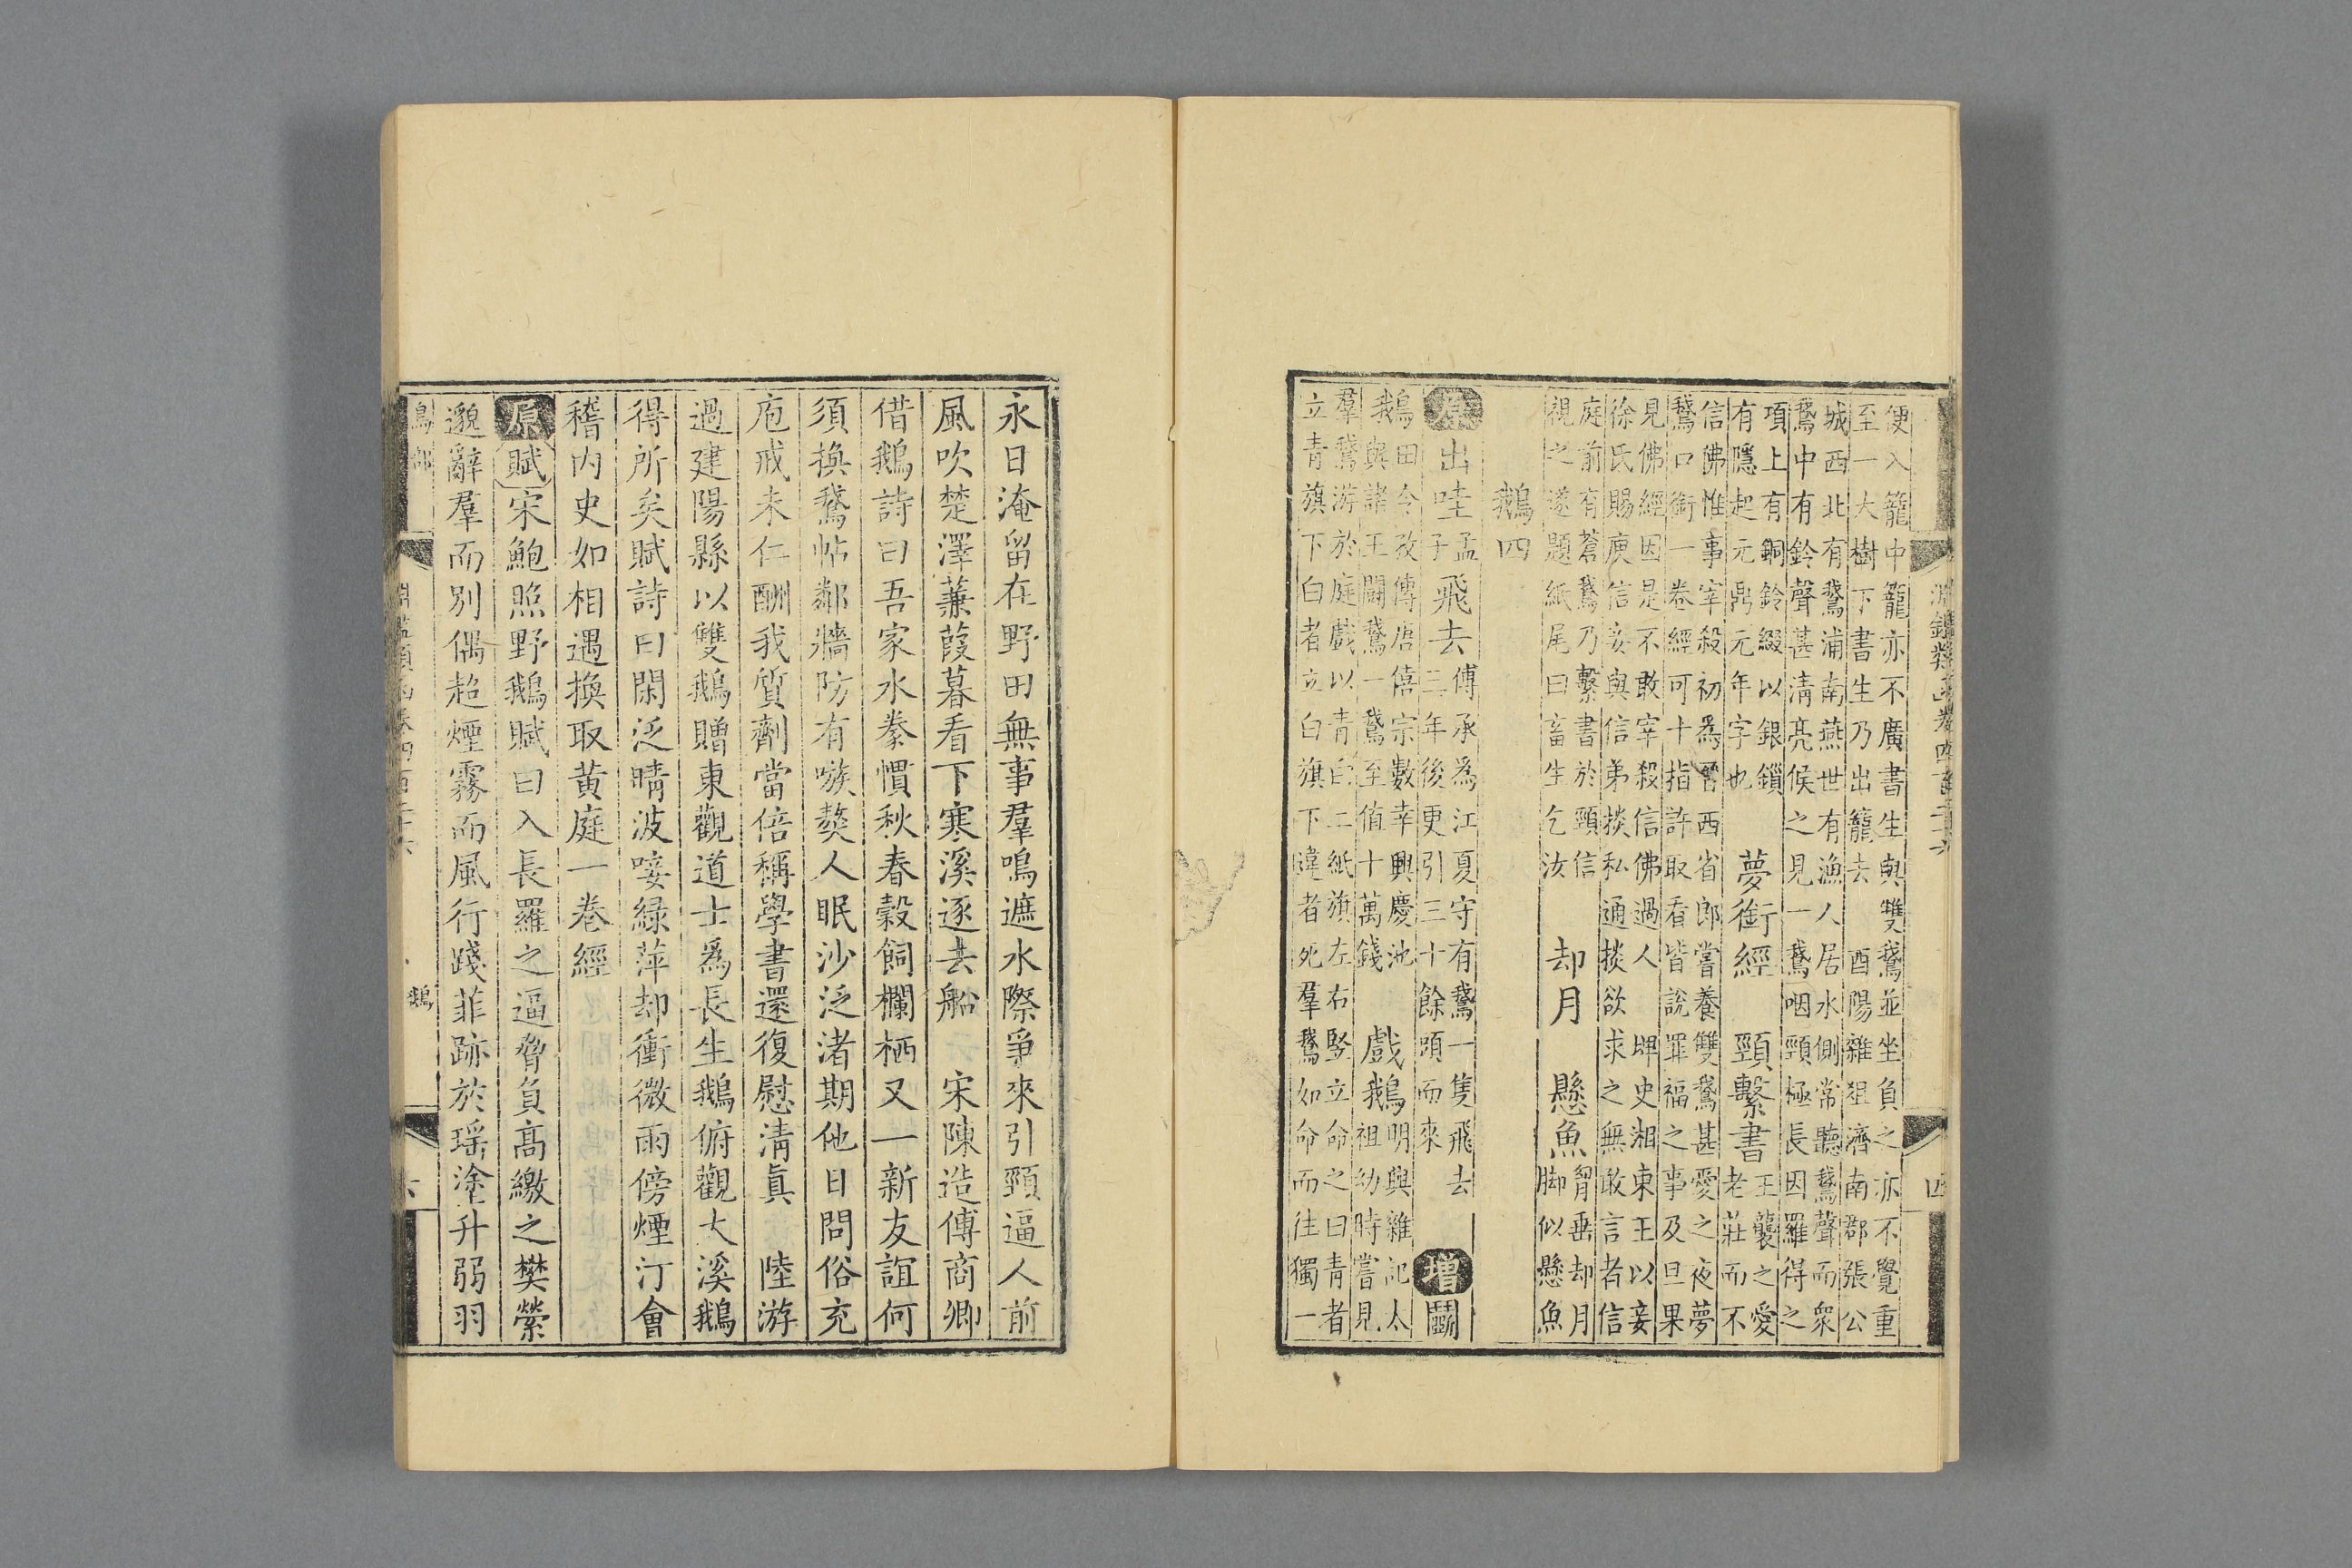 淵鑑類函卷四百二十六 四
便入籠中籠亦不廣書生與雙鵞並坐負之亦不覺重
至一大樹下書生乃出籠去 酉陽雜俎濟南郡張公
城西北有鵞浦南燕世有漁人居水側常聽鵞聲而衆
鵞中有鈴聲甚淸亮候之見一鵞咽頸極長因羅得之
項上有銅鈴綴以銀鎖
有隱起元鼎元年字也 夢銜經 頸繫書 王襲之愛
老莊而不
信佛惟事宰殺初爲晉西省郎嘗養雙鵞甚愛之夜夢
鵞口銜一卷經可十指許取看皆說罪福之事及旦果
見佛經因是不敢宰殺信佛過人 史湘東王以妾
徐氏賜庾信妾與信弟掞私通掞欲求之無敢言者信
庭前有蒼鵞乃繫書於頸信
視之遂題紙尾曰畜生乞汝 却月 懸魚 胷垂却月
脚似懸魚
鵝四
原 出哇 孟子 飛去 傅承爲江夏守有鵞一隻飛去
三年後更引三十餘頭而來 增 鬬
鵝 田令孜傳唐僖宗數幸興慶池
與諸王鬬鵞一鵞至值十萬錢 戲鵝 明興雜記太
祖幼時嘗見
羣鵞游於庭戲以青白二紙旗左右竪立命之曰青者
立青旗下白者立白旗下違者死羣鵞如命而往獨一
永日淹留在野田無事羣鳴遮水際爭來引頸逼人前
風吹楚澤蒹葭暮看下寒溪逐去船 宋陳造傅商卿
借鵝詩曰吾家水豢慣秋春穀飼欄栖又一新友誼何
須換鵞帖鄰牆防有嗾獒人眠沙泛渚期他日問俗充
庖戒未仁酬我質劑當倍稱學書還復慰淸眞 陸游
過建陽縣以雙鵝贈東觀道士爲長生鵝俯觀大溪鵝
得所矣賦詩曰閑泛晴波唼緑萍却衝微雨傍煙汀會
稽內史如相遇換取黃庭一卷經
原 賦 宋鮑照野鵝賦曰入長羅之逼脅負高繳之樊縈
邈辭羣而別偶超煙霧而風行踐菲跡於瑤塗升弱羽
鳥部 淵鑑類函卷四百二十六 鵝 六